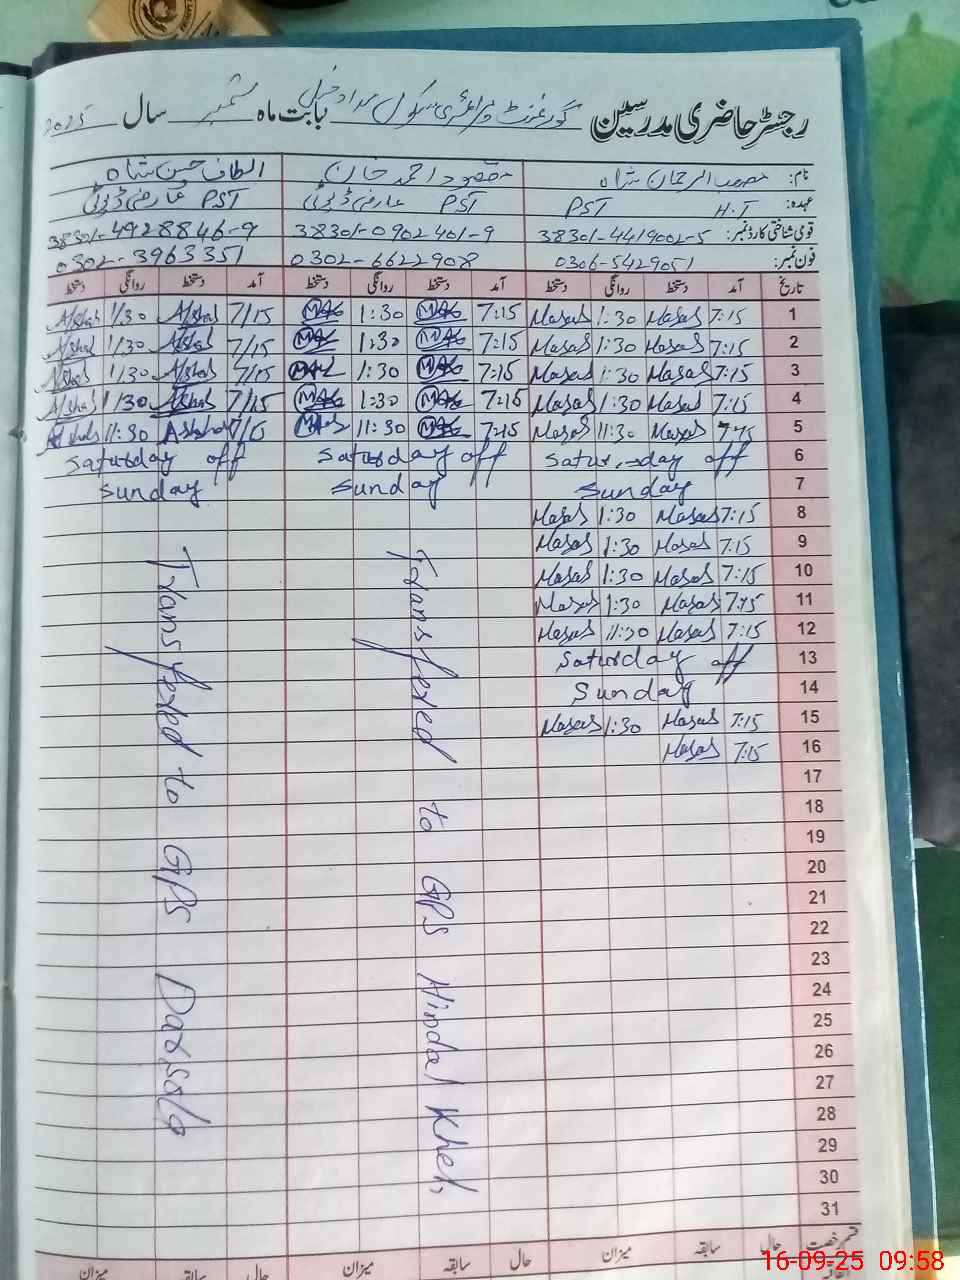 رجسٹر حاضری مدرسین گورنمنٹ پرائمری سکول بابت ماہ ستمبر سال 2025
نام: الرحمان شاہ مقصود احمد خان الطاف حسین شاہ
عہدہ: H.T PST PST عارضی ڈیوٹی PST عارضی ڈیوٹی
قومی شناختی کارڈ نمبر: 38301-4419002-5 38301-0902401-9 38301-4928846-9
فون نمبر: 0306-5429051 0302-6622908 0302-3963351
تاریخ آمد دستخط روانگی دستخط آمد دستخط روانگی دستخط آمد دستخط روانگی دستخط
1 7:15 Masas 1:30 Masas 7:15 1:30 7/15 A/shah 1/30 A/shah
2 7:15 Masas 1:30 Masas 7:15 1:30 7/15 A/shah 1/30 A/shah
3 7:15 Masas 1:30 Masas 7:15 1:30 7/15 A/shah 1/30 A/shah
4 7:15 Masas 1:30 Masas 7:15 1:30 7/15 A/shah 1/30 A/shah
5 7:15 Masas 11:30 Masas 7:15 11:30 7/15 11:30
6 Saturday off Saturday off Saturday off
7 Sunday Sunday Sunday
8 7:15 Masas 1:30 Masas
9 7:15 Masas 1:30 Masas
10 7:15 Masas 1:30 Masas
11 7:15 Masas 1:30 Masas
12 7:15 Masas 11:30 Masas
13 Saturday off
14 Sunday
15 7:15 Masas 1:30 Masas
16 7:15 Masas
17
18
19
20
21
22
23
24
25
26
27
28
29
30
31
Transfered to GPS Hindal Khel
Transfered to GPS
قسم رخصت حال سابقہ میزان حال سابقہ میزان حال سابقہ میزان
16-09-25 09:58